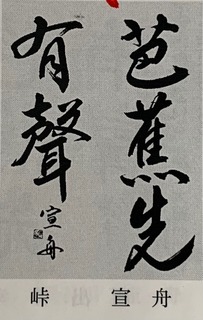 芭蕉先
有聲
宣舟
峠　宣舟